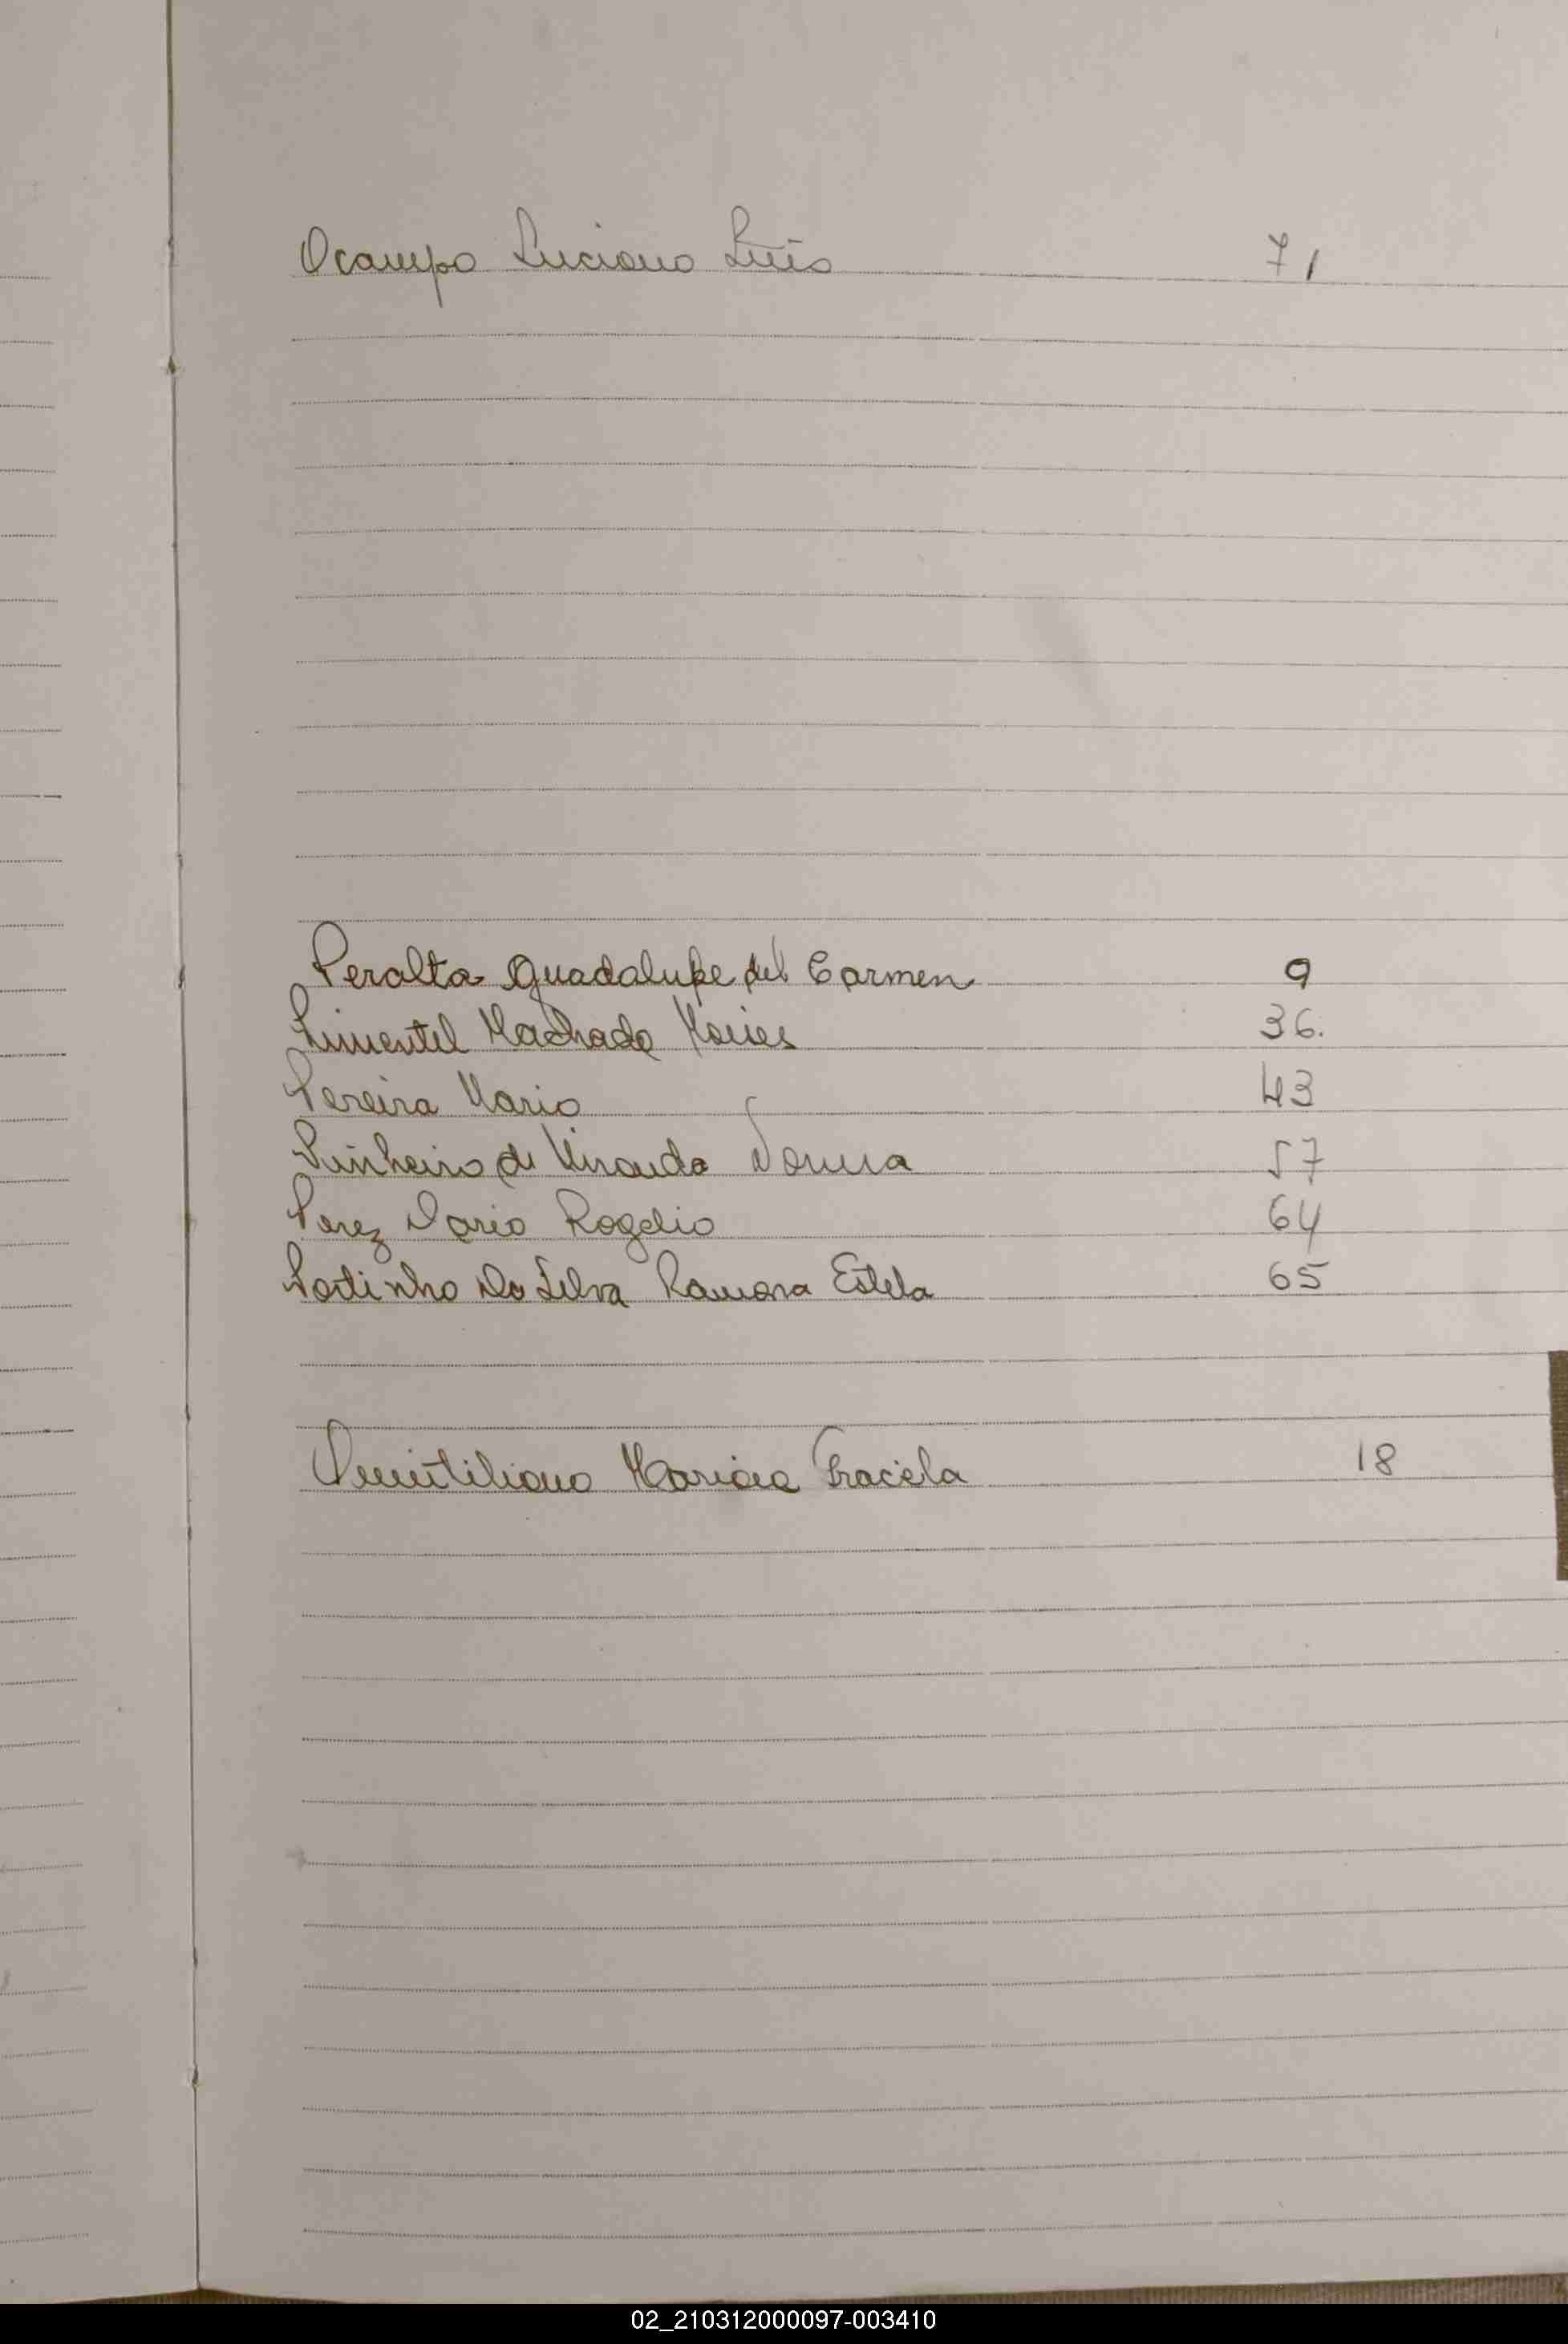 Ocampo Luciano Luis 71
Peralta Guadalupe del Carmen 9
Pimentel Machado Moises 36.
Pereira Mario 43
Pinheiro de Miranda Norma 57
Perez Dario Rogelio 64
Portinho Da Silva Ramona Estela 65
Quintiliano Mariana Graciela 18
02_210312000097-003410